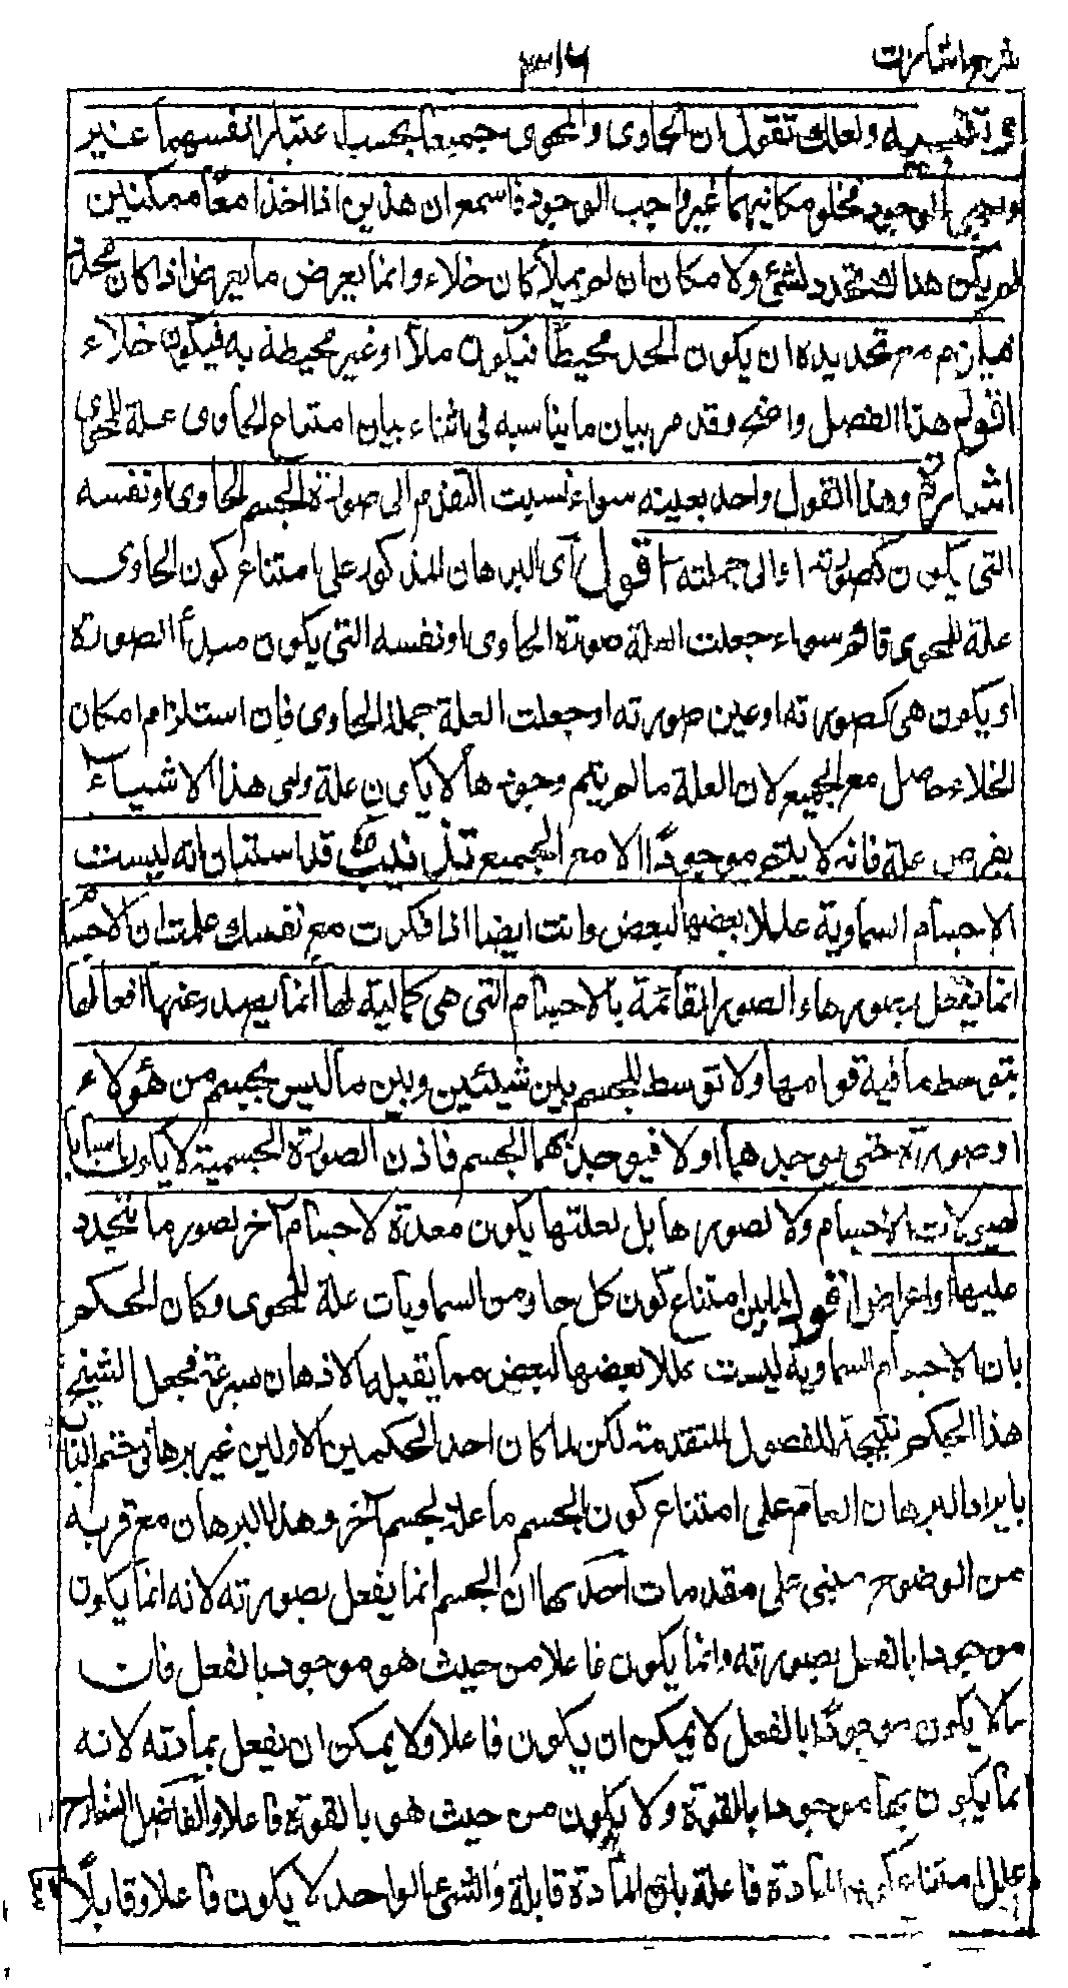 شرح اشارت
٣١٦
وتنبيه ولعلك تقول ان الحاوى والمحوى جميعا بحسب اعتبار انفسهما غير
واجبى الوجود فخلو مكانيهما غير واجب الوجود فاسمع ان هذين اذا اخذا معًا ممكنين
لم يكن هناك تحدد لشئ ولا مكان ان لم يملأ كان خلاء وانما يعرض ما يعرض اذا كان محدد
فيلزم مع تحديده ان يكون الحد محيطًا فيكون ملأ او غير محيطة به فيكون خلاء
اقول هذا الفصل واضح وقد مر بيان ما يناسبه فى اثناء بيان امتناع الحاوى علة للمحوى
اشارة وهذا القول واحد بعينه سواء نسبت التقدم الى صورة الجسم الحاوى او نفسه
التى يكون كصورته او الى جملته اقول اى البرهان المذكور على امتناع كون الحاوى
علة للمحوى قائم سواء جعلت العلة صورة الحاوى او نفسه التى يكون مبدأ الصورة
او يكون هى كصورته او عين صورته او جعلت العلة جملة الحاوى فان استلزام امكان
الخلاء حاصل مع الجميع لان العلة ما لم يتم وجودها لا يكون علة واى هذا الاشياء
يفرض علة فانه لا يتم موجودًا الا مع الجميع تذنيب قد استبان انه ليست
الاجسام السماوية عللا بعضها لبعض وانت ايضا اذا فكرت مع نفسك علمت ان الاجسام
انما تفعل بصورها والصور القائمة بالاجسام التى هى كمالية لها انما يصدر عنها افعالها
بتوسط ما فيه قوامها ولا توسط للجسم بين شيئين وبين ما ليس بجسم من هؤلاء
او صورة حتى يوجد هما اولا فيوجد بهما الجسم فاذن الصورة الجسمية لا يكون اسبابا
لهيولات الاجسام ولا لصورها بل لعلتها يكون معدة لاجسام آخر لصور ما يتجدد
عليها او اعراض اقول لما بين امتناع كون كل حاو من السماويات علة للمحوى وكان الحكم
بان الاجسام السماوية ليست عللا بعضها لبعض مما يقبله الاذهان بسرعة فجعل الشيخ
هذا الحكم نتيجة للفصول المتقدمة لكن لما كان احد الحكمين الاولين غير برهانى ختم الباب
بايراد البرهان العام على امتناع كون الجسم ما علة لجسم آخر وهذا البرهان مع قربه
من الوضوح مبنى على مقدمات احدىها ان الجسم انما يفعل بصورته لانه انما يكون
موجودا بالفعل بصورته وانما يكون فاعلا من حيث هو موجود بالفعل فان
ما لا يكون موجودًا بالفعل لا يمكن ان يكون فاعلا ولا يمكن ان يفعل بمادته لانه
انما يكون بها موجودا بالقوة ولا يكون من حيث هو بالقوة فاعلا والفاضل الشارح
علل امتناع كون المادة فاعلة بان المادة قابلة والشئ الواحد لا يكون فاعلا وقابلًا